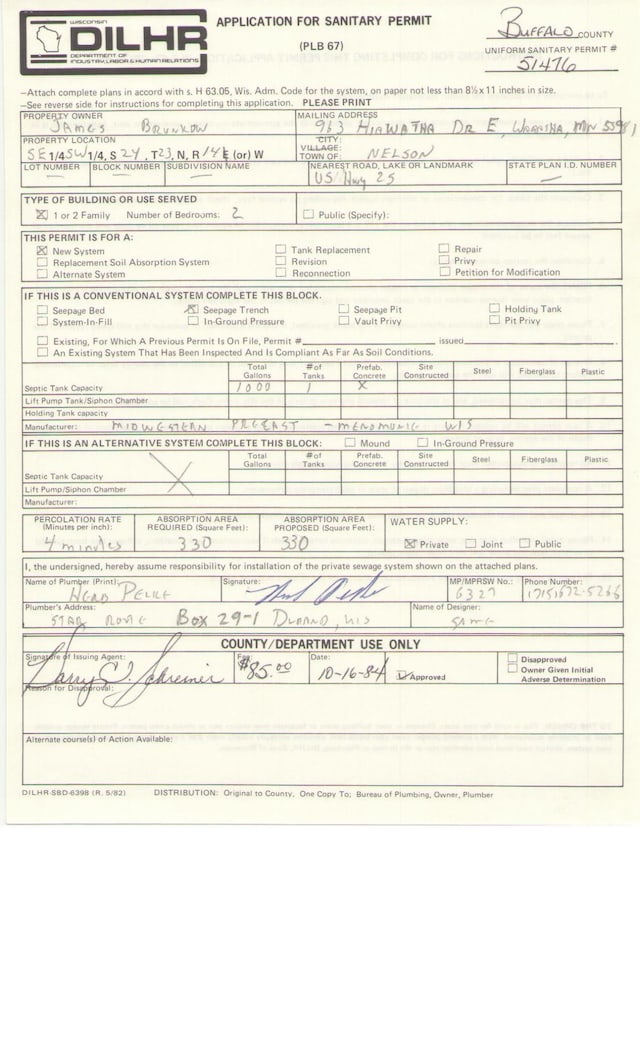 WISCONSIN
DILHR
DEPARTMENT OF
INDUSTRY, LABOR & HUMAN RELATIONS
APPLICATION FOR SANITARY PERMIT
(PLB 67)
BUFFALO COUNTY
UNIFORM SANITARY PERMIT #
51476
—Attach complete plans in accord with s. H 63.05, Wis. Adm. Code for the system, on paper not less than 8½ x 11 inches in size.
—See reverse side for instructions for completing this application. PLEASE PRINT
PROPERTY OWNER
JAMES BRUNKOW
MAILING ADDRESS
963 HIAWATHA DR E, WABASHA, MN 55981
PROPERTY LOCATION
SE 1/4 SW 1/4, S 24, T 23, N, R 14 E (or) W
CITY:
VILLAGE:
TOWN OF: NELSON
LOT NUMBER BLOCK NUMBER SUBDIVISION NAME
NEAREST ROAD, LAKE OR LANDMARK
US Hwy 25
STATE PLAN I.D. NUMBER
TYPE OF BUILDING OR USE SERVED
1 or 2 Family Number of Bedrooms: 2 Public (Specify):
THIS PERMIT IS FOR A:
New System Tank Replacement Repair
Replacement Soil Absorption System Revision Privy
Alternate System Reconnection Petition for Modification
IF THIS IS A CONVENTIONAL SYSTEM COMPLETE THIS BLOCK.
Seepage Bed Seepage Trench Seepage Pit Holding Tank
System-In-Fill In-Ground Pressure Vault Privy Pit Privy
Existing, For Which A Previous Permit Is On File, Permit # issued .
An Existing System That Has Been Inspected And Is Compliant As Far As Soil Conditions.
Total Gallons # of Tanks Prefab. Concrete Site Constructed Steel Fiberglass Plastic
Septic Tank Capacity 1000 1 X
Lift Pump Tank/Siphon Chamber
Holding Tank capacity
Manufacturer: MIDWESTERN PRECAST - MENOMONIE WIS
IF THIS IS AN ALTERNATIVE SYSTEM COMPLETE THIS BLOCK: Mound In-Ground Pressure
Total Gallons # of Tanks Prefab. Concrete Site Constructed Steel Fiberglass Plastic
Septic Tank Capacity
Lift Pump/Siphon Chamber
Manufacturer:
PERCOLATION RATE
(Minutes per inch):
4 minutes
ABSORPTION AREA
REQUIRED (Square Feet):
330
ABSORPTION AREA
PROPOSED (Square Feet):
330
WATER SUPPLY:
Private Joint Public
I, the undersigned, hereby assume responsibility for installation of the private sewage system shown on the attached plans.
Name of Plumber (Print):
HERB PELKE
Signature:
Herb Pelke
MP/MPRSW No.:
6327
Phone Number:
(715) 672-5266
Plumber's Address:
STAR ROUTE Box 29-1 DURAND, WIS
Name of Designer:
SAME
COUNTY/DEPARTMENT USE ONLY
Signature of Issuing Agent:
Fee:
$85.00
Date:
10-16-84
Approved
Disapproved
Owner Given Initial
Adverse Determination
Reason for Disapproval:
Alternate course(s) of Action Available:
DILHR-SBD-6398 (R. 5/82) DISTRIBUTION: Original to County, One Copy To; Bureau of Plumbing, Owner, Plumber